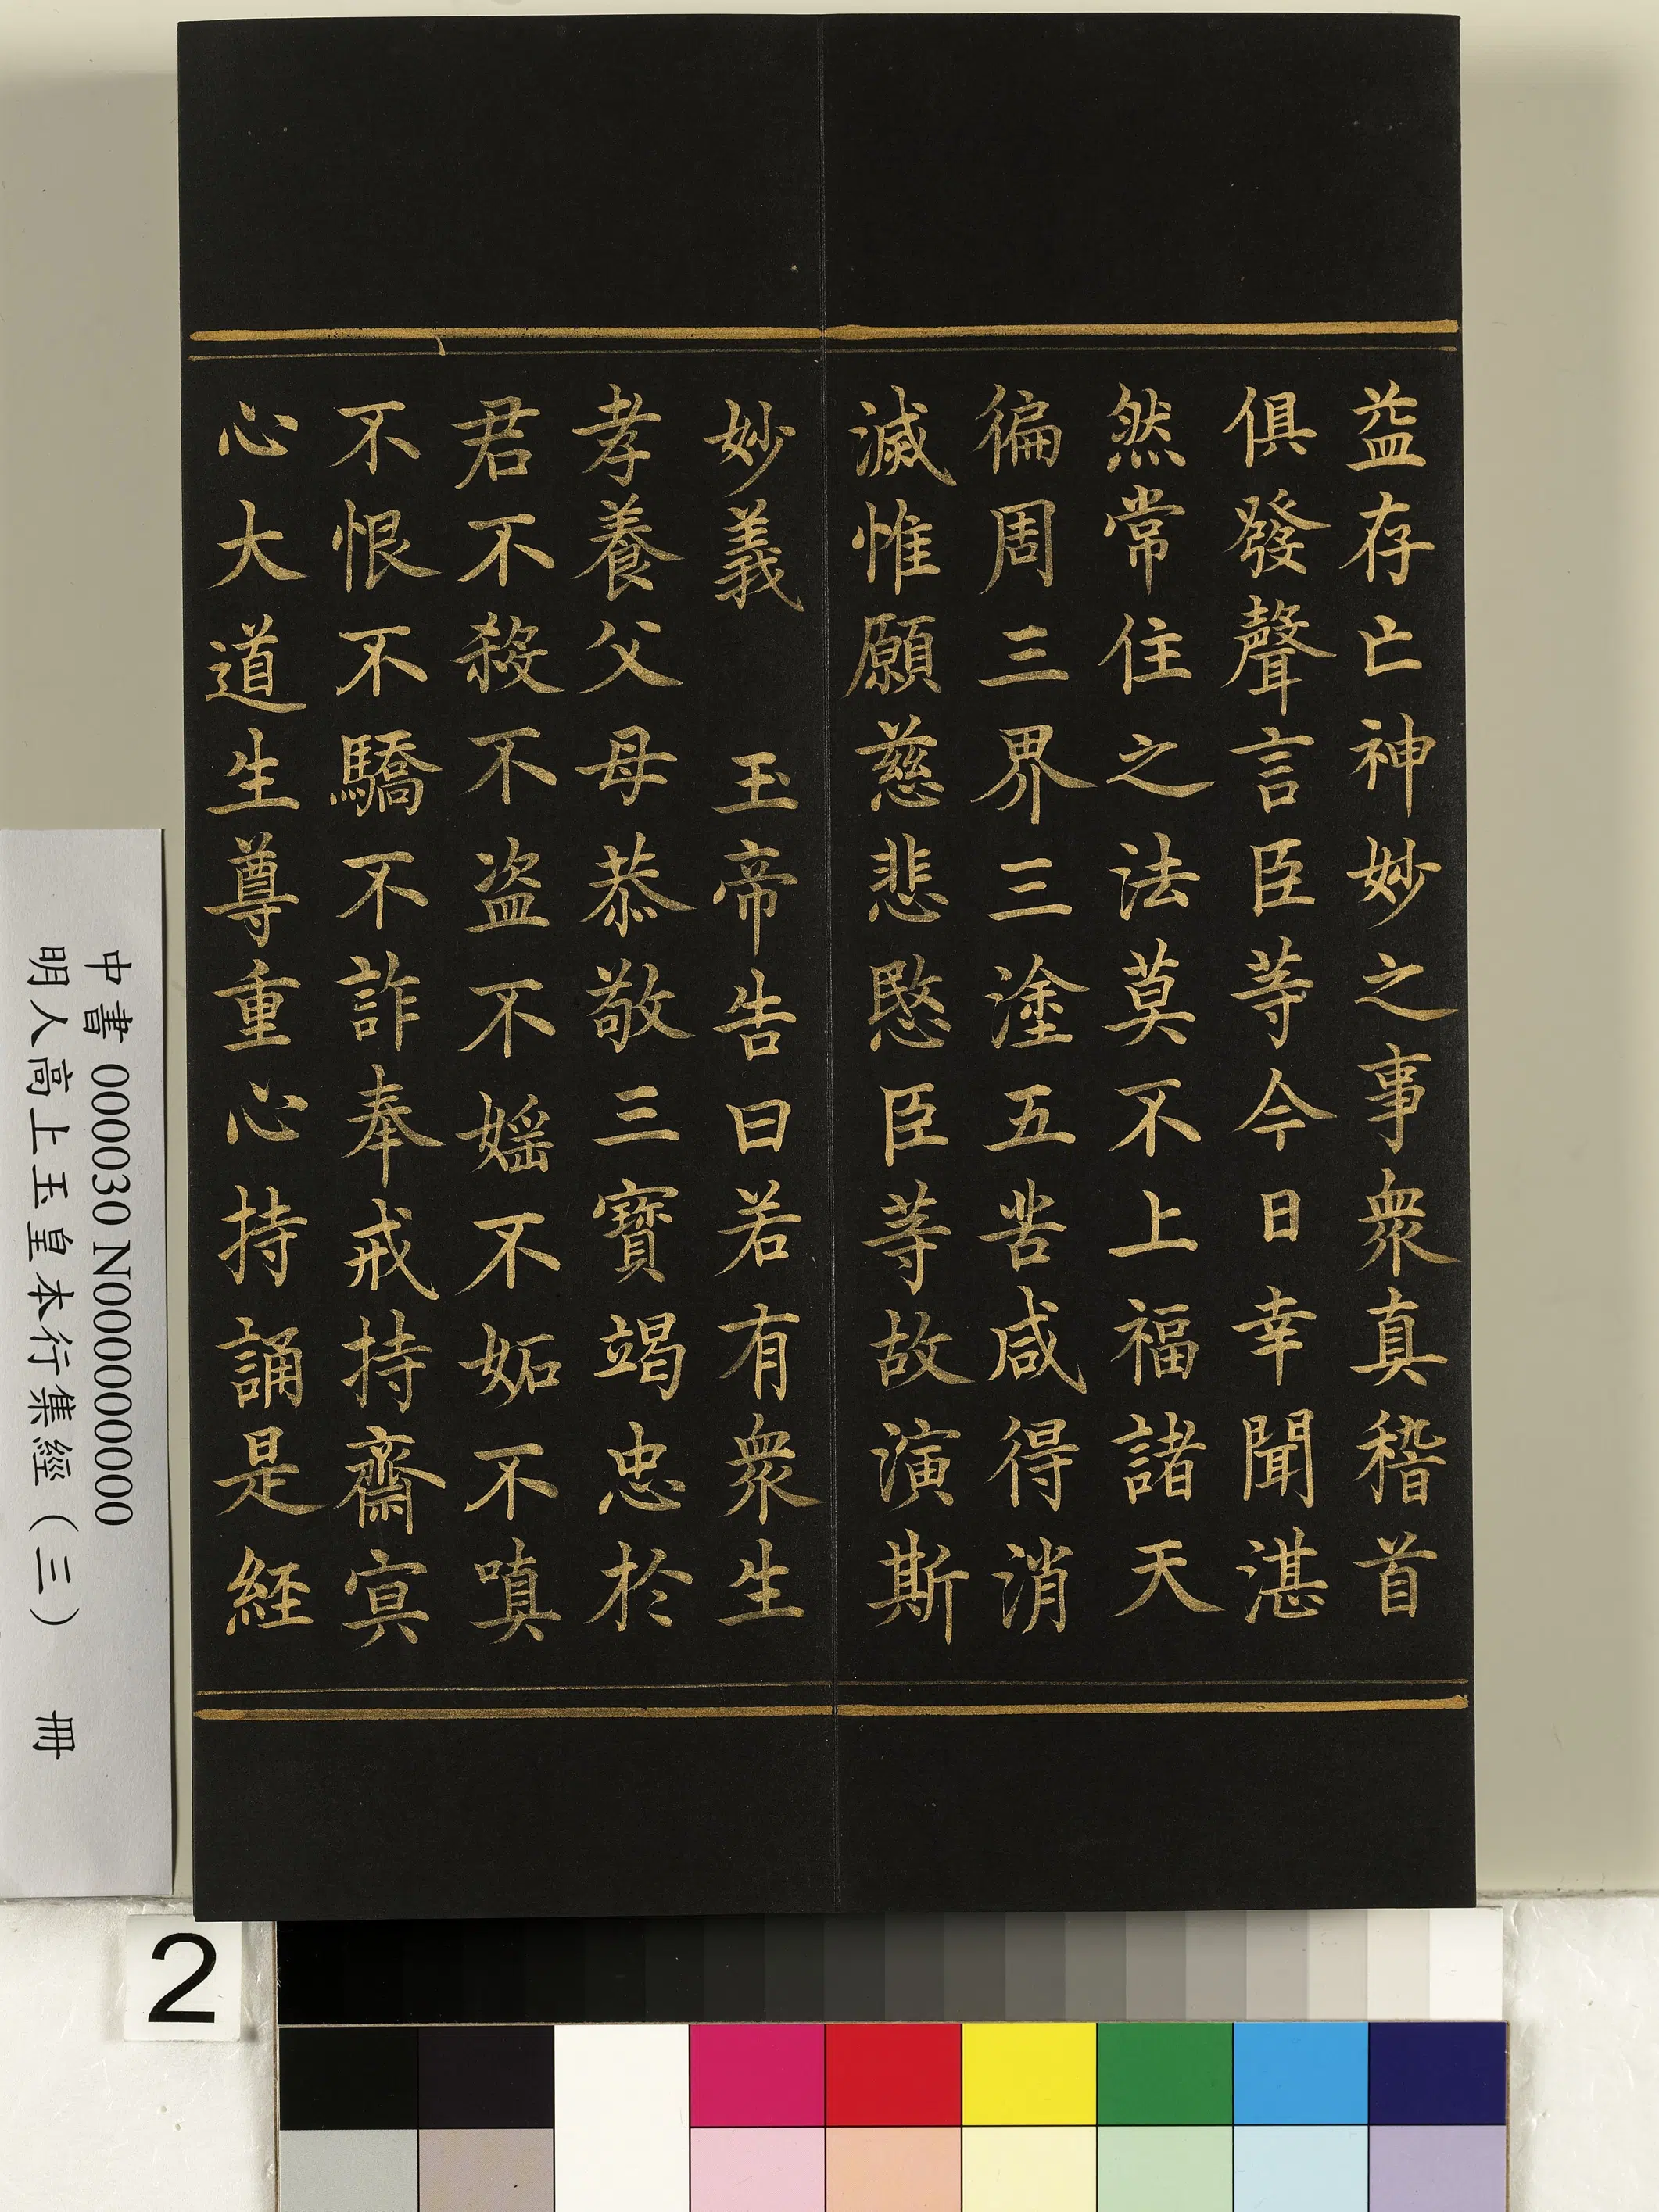 益存亡神妙之事衆真稽首
俱發聲言臣等今日幸聞湛
然常住之法莫不上福諸天
徧周三界三塗五苦咸得消
滅惟願慈悲愍臣等故演斯
妙義　玉帝告曰若有衆生
孝養父母恭敬三寳竭忠於
君不殺不盗不婬不妬不嗔
不恨不驕不詐奉戒持齋㝠
心大道生尊重心持誦是經
中書 000030 N000000000
明人高上玉皇本行集經（三） 冊
2